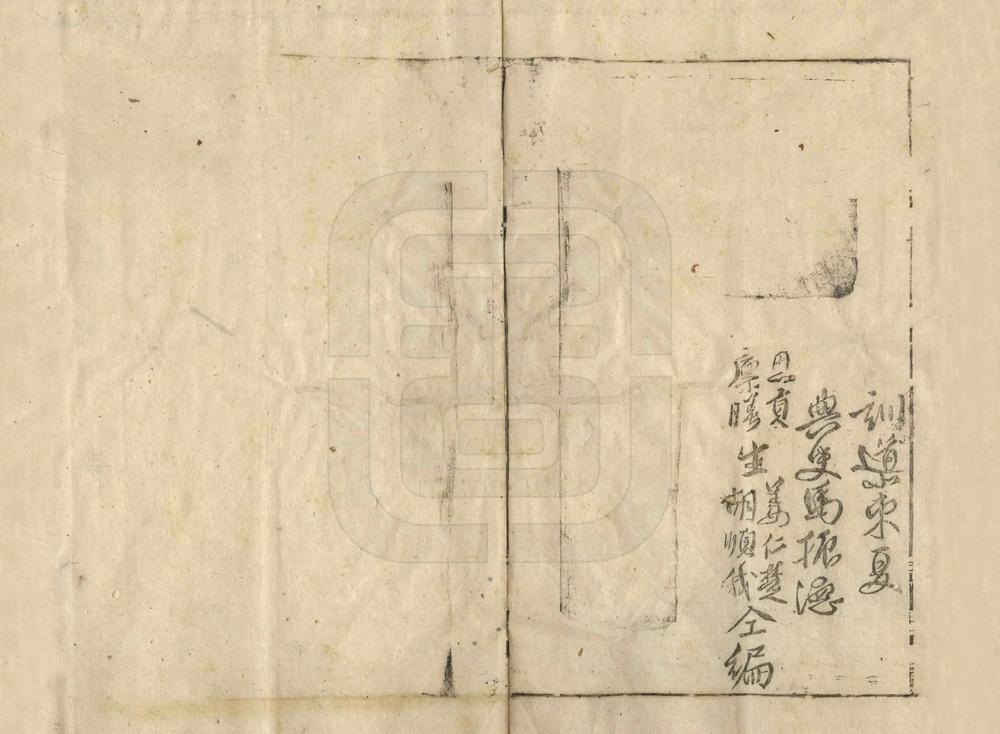 訓導夏
典史馬振德
恩貢
廩膳
生
姜仁楚
胡順我
仝編